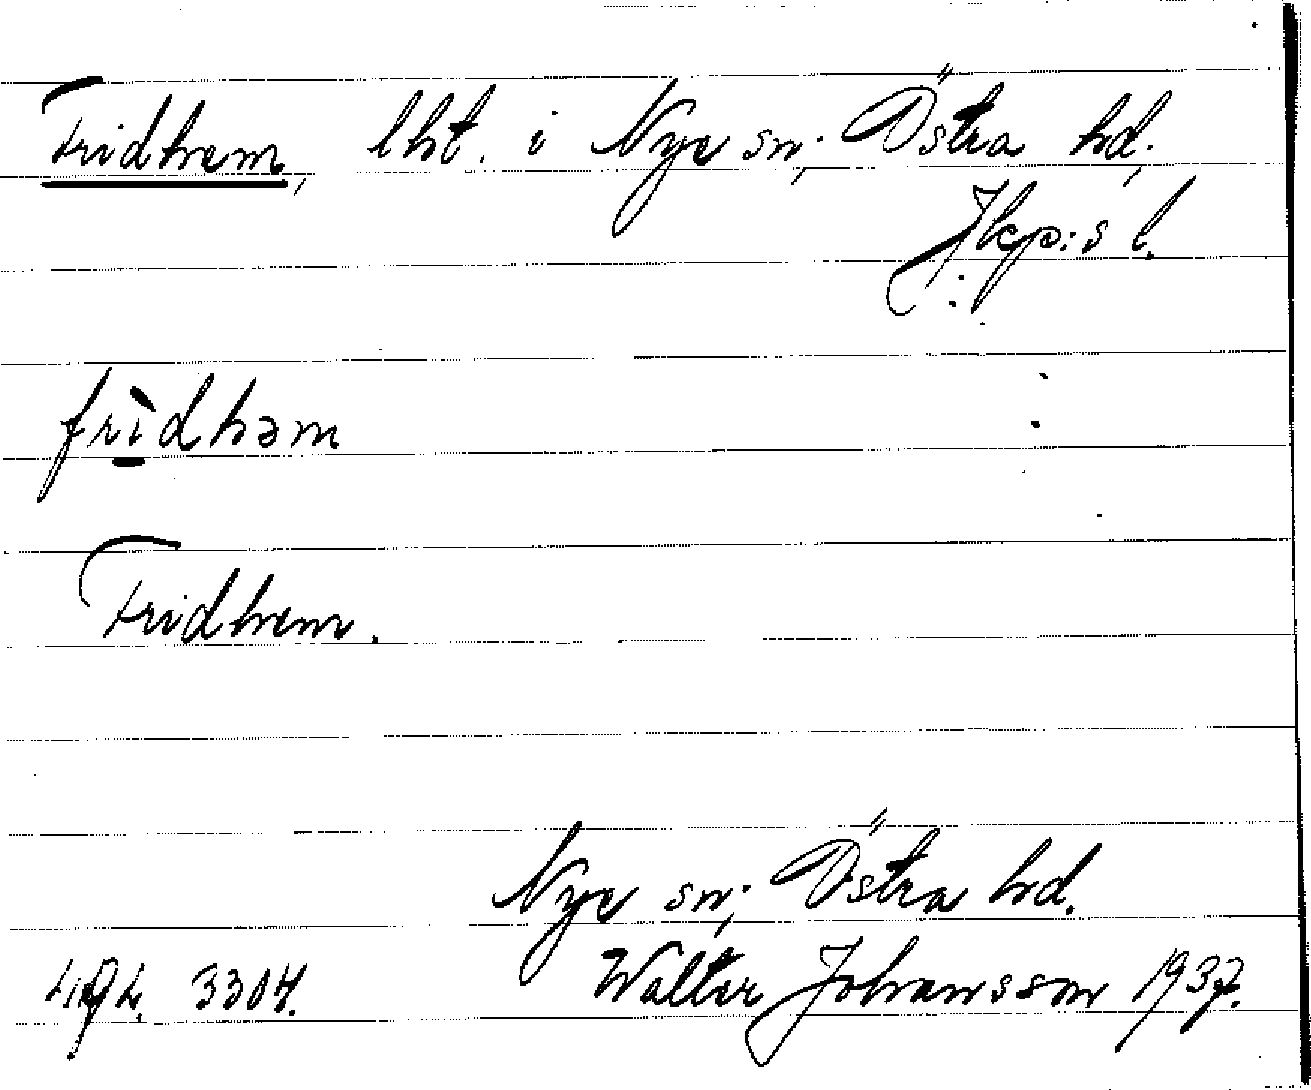 Fridhem, lht. i Nye sn; Östra hd;
Jkp:s l.
frìdhəm
Fridhem.
Nye sn; Östra hd.
3304. Walter Johansson 1937.